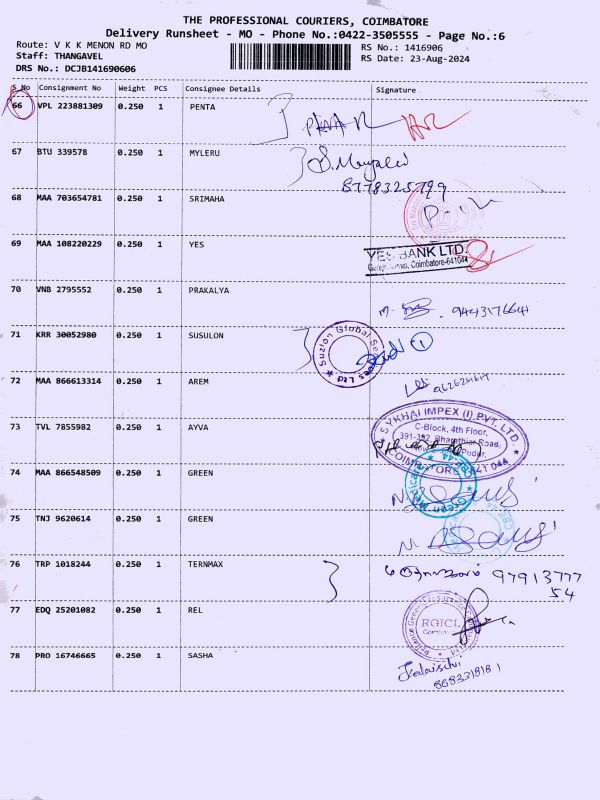 THE PROFESSIONAL COURIERS, COIMBATORE
Delivery Runsheet - MO - Phone No.:0422-3505555 - Page No.:6
Route: V K K MENON RD MO
RS No.: 1416906
Staff: THANGAVEL
RS Date: 23-Aug-2024
DRS No.: DCJB141690606
S No Consignment No Weight PCS Consignee Details Signature
66 VPL 223881309 0.250 1 PENTA
67 BTU 339578 0.250 1 MYLERU
8778325799
68 MAA 703654781 0.250 1 SRIMAHA
69 MAA 108220229 0.250 1 YES
YES BANK LTD.
Coimbatore-641044
70 VNB 2795552 0.250 1 PRAKALYA
9443176641
71 KRR 30052980 0.250 1 SUSULON
Suzlon Global Ltd
72 MAA 866613314 0.250 1 AREM
73 TVL 7855982 0.250 1 AYVA
SYKHAI IMPEX (I) PVT. LTD.
C-Block, 4th Floor,
391-392, Bharathiar Road,
Pudur,
COIMBATORE 641 044
74 MAA 866548509 0.250 1 GREEN
Green Medical
75 TNJ 9620614 0.250 1 GREEN
76 TRP 1018244 0.250 1 TERNMAX
97913777
54
77 EDQ 25201082 0.250 1 REL
RGICL
78 PRO 16746665 0.250 1 SASHA